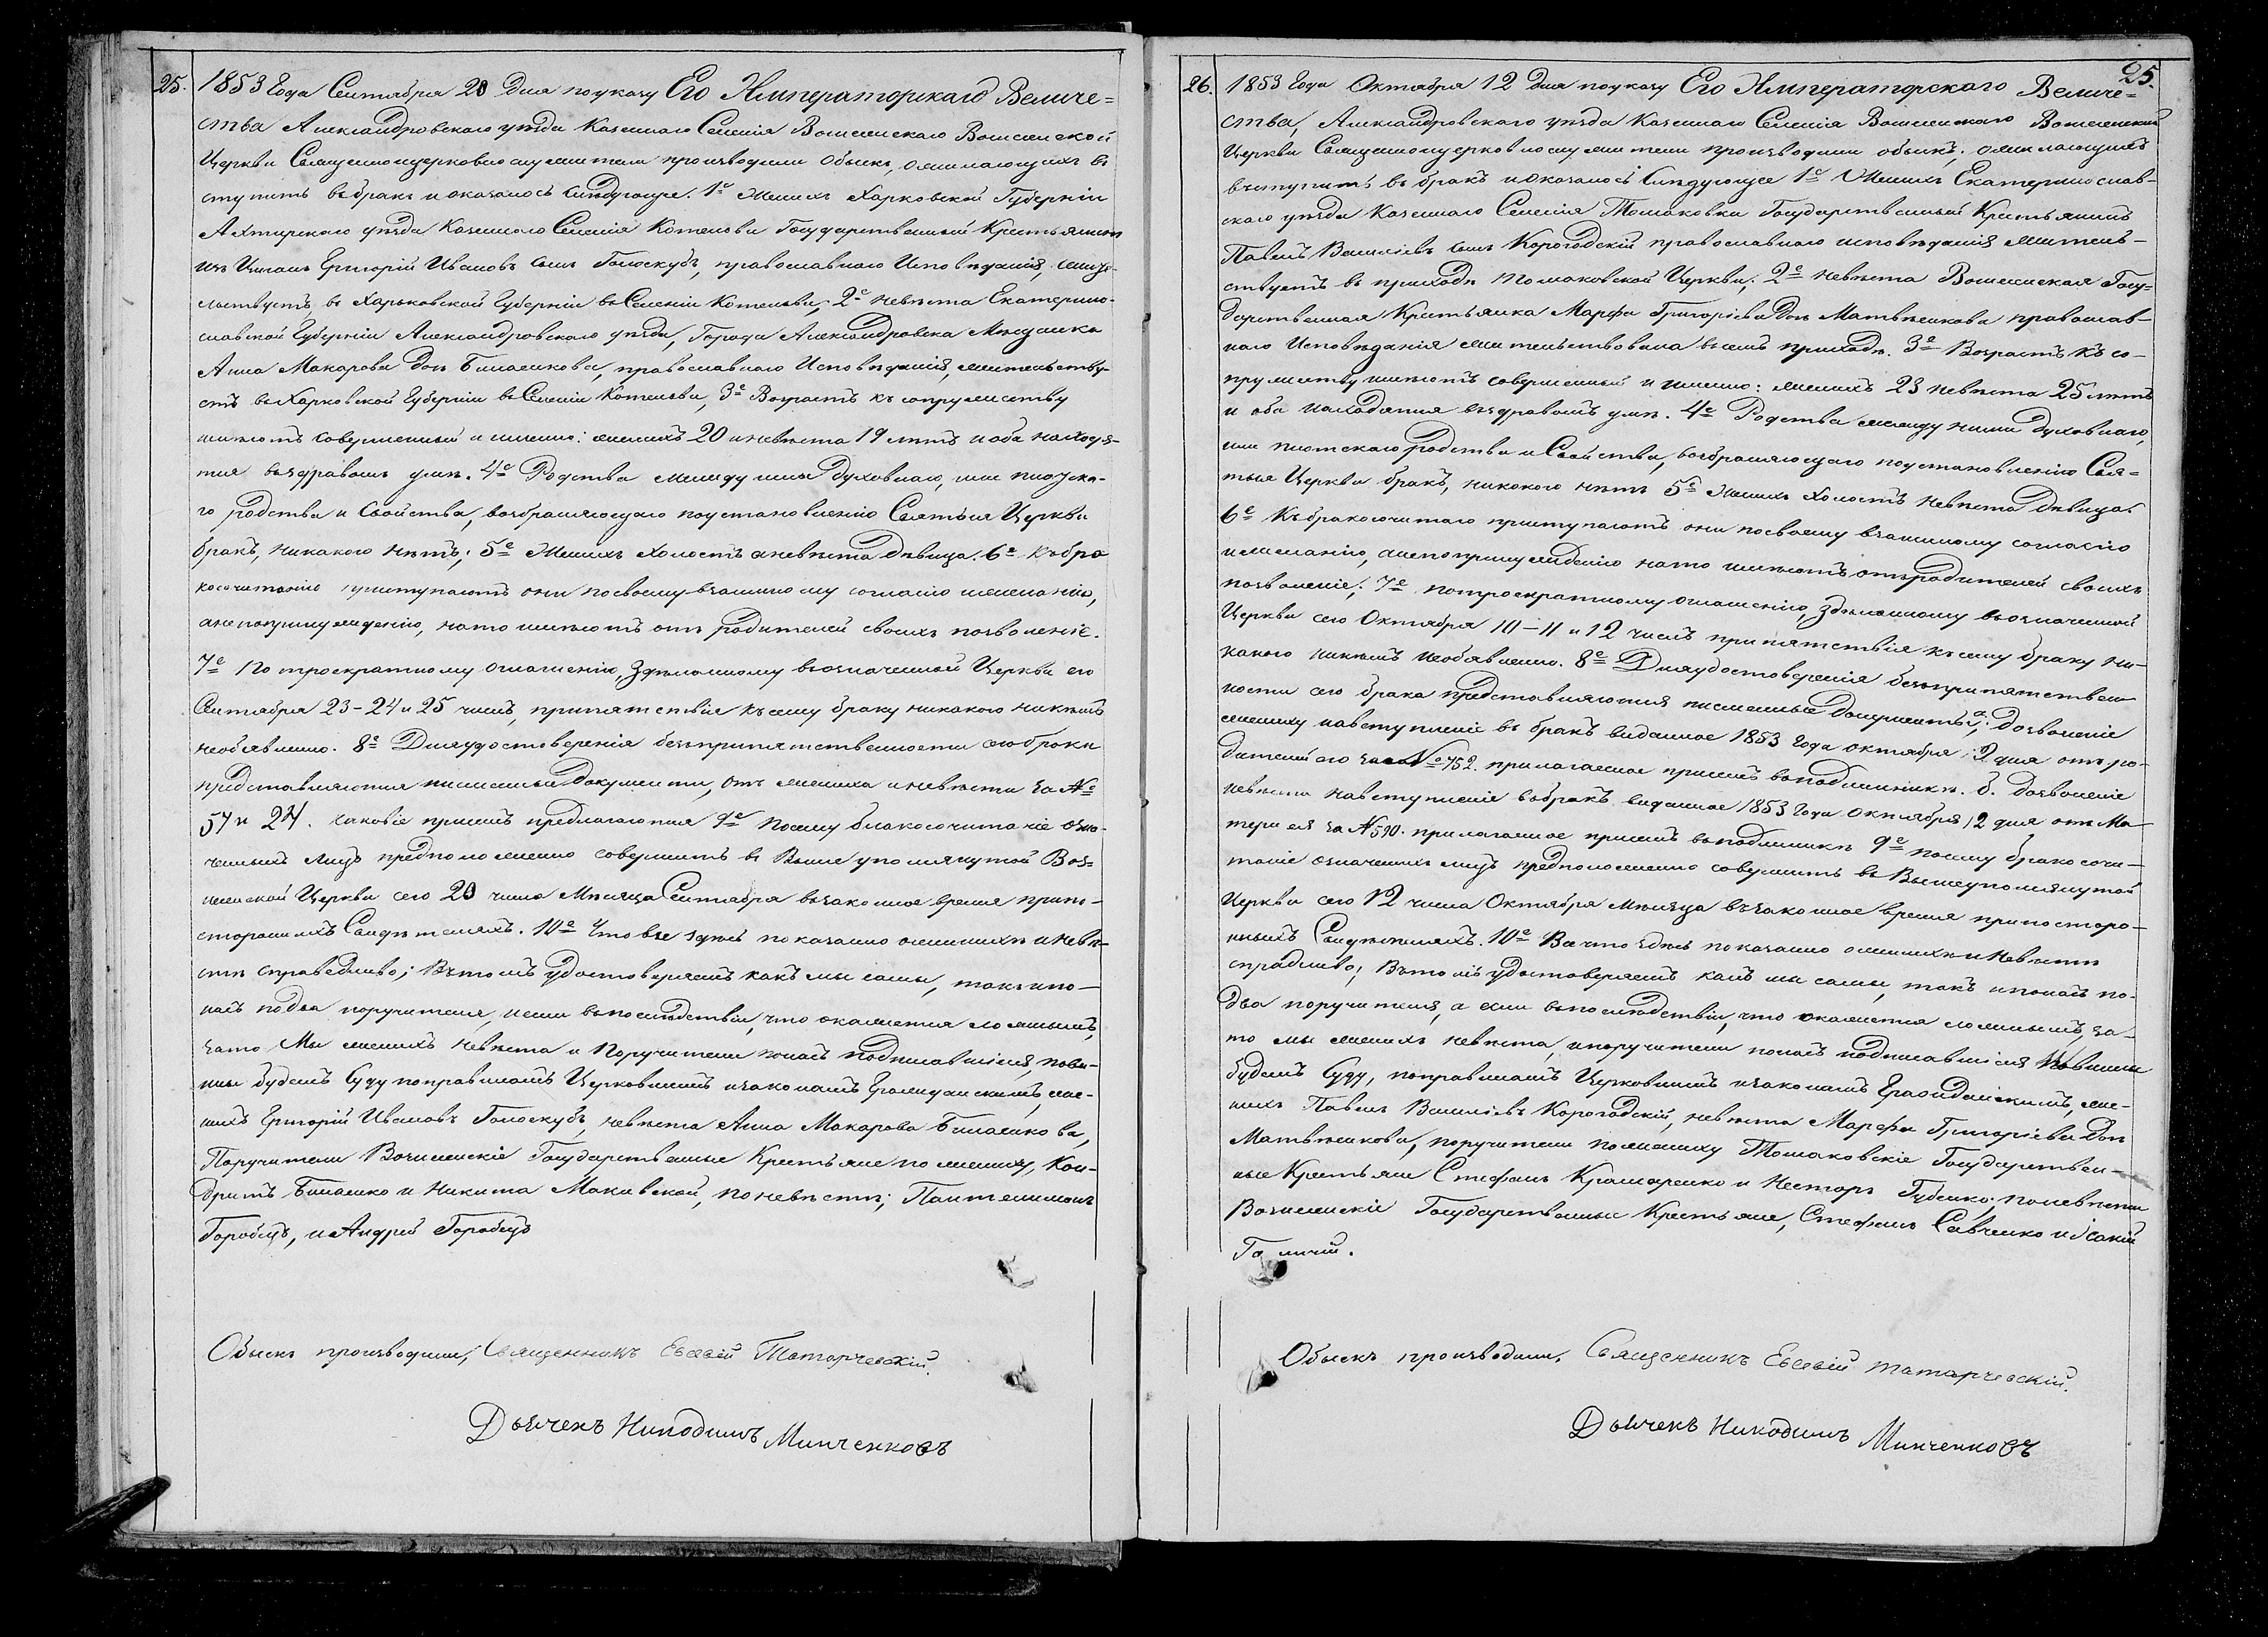 25. 1853 Года Сентября 20 Дня по указу Его Императорскаго Величе=
ства Александровскаго уѣзда Казеннаго Селенія Вознесенскаго Вознесенской
Церкви Священноцерковнослужители производили Обыскъ, о желающихъ в
ступить въ бракъ и оказалось слѣдующее. 1е Женихъ Харковской Губерніи
Ахтирскаго уѣзда Казеннаго Селенія Котельви Государственный Крестьянинъ
изъ Григорій Ивановъ сынъ Голоскубъ, православнаго Исповѣданія,
въ Харьковской Губерніи въ Селеніи Котельви; 2е невѣста Екатерино-
славской Губерніи Александровскаго уѣзда, Города Александровска Мѣщанка
Анна Макарова Дочь Билашкова, православнаго Исповѣданія, жительству-
етъ въ Харковской Губерніи въ Селеніи Котельви, 3е Возрастъ къ супружеству
имѣютъ совершенный и именно: женихъ 20 и невѣста 19 лѣтъ и оба находя-
тся въ здравомъ умѣ. 4е Родства между ними Духовнаго, или плотска-
го родства и Свойства, возбраняющаго по установленію Святыя Церкви
бракъ, никакого нѣтъ; 5е Женихъ Холостъ а невѣста Дѣвица. 6е Къ бра
косочитанію приступаютъ они по своему взаимному согласію и желанію,
а не по принужденію, на то имѣютъ отъ родителей своихъ позволеніе.
7е По троекратному оглашенію, здѣланному въ означенной Церкви сего
Сентября 23-24 и 25 числъ, припятствіе къ сему браку никакого никѣмъ
необявлено. 8е Для удостоверенія безъприпятственности сего брака
представляются писменные Документи, отъ жениха и невѣсти за №
57 и 24. каковіе присемъ предлагаются 9е Посему бракосочитаніе озна-
ченныхъ лицъ предположенно совершить въ Вышеупомянутой Воз=
несенской Церкви сего 20 числа Мѣсяца Сентября въ законное время при по-
стороннихъ Свидѣтеляхъ. 10е Что все здѣсь показанно о женихѣ и невѣ-
стѣ справедливо; Въ томъ удостоверяемъ какъ мы сами, такъ и по-
насъ по два поручителя, и если въ послѣдствіи, что окажется ложнымъ,
за то Мы женихъ невѣста и Поручители по насъ подписавшіеся, пови-
ны будемъ Суду по правиламъ Церковнимъ и законамъ Гражданскимъ, же-
нихъ Григорій Ивановъ Голоскубъ, невѣста Анна Макарова Билашкова,
Поручители Вознесенскіе Государственные Крестьяне по жениху, Кон-
дратъ Билашко и Никита Макивской, по невѣстѣ; Пантелимонъ
Горобецъ, и Андрей Горобецъ
Обыскъ производили, Священникъ Евсевій Татарчевскій.
Дьячекъ Никодимъ Минченковъ
25.
26. 1853 Года Октября 12 Дня по указу Его Императорскаго Величе=
ства, Александровскаго уѣзда Казеннаго Селенія Вознесенскаго Вознесенской
Церкви Священноцерковнослужители производили обыскъ; о желающихъ
въступить въ бракъ и оказалось Слѣдующее 1е Женихъ Екатеринослав-
скаго уѣзда Казеннаго Селенія Томаковки Государственный Крестьянинъ
Павелъ Василіевъ сынъ Корогодскій православнаго исповѣданія жителъ-
ствуетъ въ приходѣ Томаковской Церкви; 2е невѣста Вознесенская Госу-
дарственная Крестьянка Марфа Григоріева Дочь Матвѣенкова православ-
наго Исповѣданія жительствовала въ семъ приходѣ. 3е Возрастъ къ со-
пружеству имѣютъ совершенный и именно: женихъ 23 невѣста 25 лѣтъ
и оба находятся въ здравомъ умѣ. 4е Родства между ними Духовнаго,
или плотскаго родства и Свойства, возбраняющаго по установленію Свя=
тыя Церкви бракъ, никакого нѣтъ 5е Женихъ Холостъ невѣста Дѣвица
6е Къ бракосочитаню приступаютъ они по своему взаимному согласію
и желанію, а не по принужденію на то имѣютъ отъ родителей своихъ
позволеніе; 7е по троекратному оглашенію, здѣланному въ означенной
Церкви сего Октября 10-11 и 12 числъ припятствія къ сему браку ни-
какого никѣмъ необявленно. 8е Для удостоверенія безъприпятствен-
ности сего брака представляются писменные Документы; а. Дозволеніе
жениху на вступленіе въ бракъ виданное 1853 Года октября 12 дня отъ ро-
дителей его за № 752. прилагаемое присемъ въ подлинникѣ. б. Дозволеніе
невѣсти на вступленіе въ бракъ виданное 1853 Года Октября 12 дня отъ Ма-
тери ея за № 590. прилагаемое присемъ въ подлиникѣ 9е посему бракосочи-
таніе означенихъ лицъ предположенно совершить въ Вышеупомянутой
Церкви сего 12 числа Октября мѣсяца въ законное время при посторо-
нныхъ Свидѣтеляхъ. 10е Все что здѣсь показанно о женихѣ и невѣсти
спрадливо; Въ томъ удостоверяемъ какъ мы сами, такъ и по насъ по-
два поручителя, а если въ послѣдствіи, что окажется ложнымъ, за-
то мы женихъ невѣста, и поручители по насъ подписавшіеся Повинны
будемъ Суду, по правиламъ Церковнимъ и законамъ Гражданскимъ, же-
нихъ Павелъ Василіевъ Корогодскій, невѣста Марфа Григоріева Дочь
Матвѣенкова, поручители по жениху Томаковскіе Государствен-
ные Крестьяне Стефанъ Крамаренко и Несторъ Губенко; по невѣсти
Вознесенскіе Государственные Крестьяне, Стефанъ Савченко и Ісакій
Обыскъ производили, Священникъ Евсевій Татарчевскій.
Дьячекъ Никодимъ Минченковъ